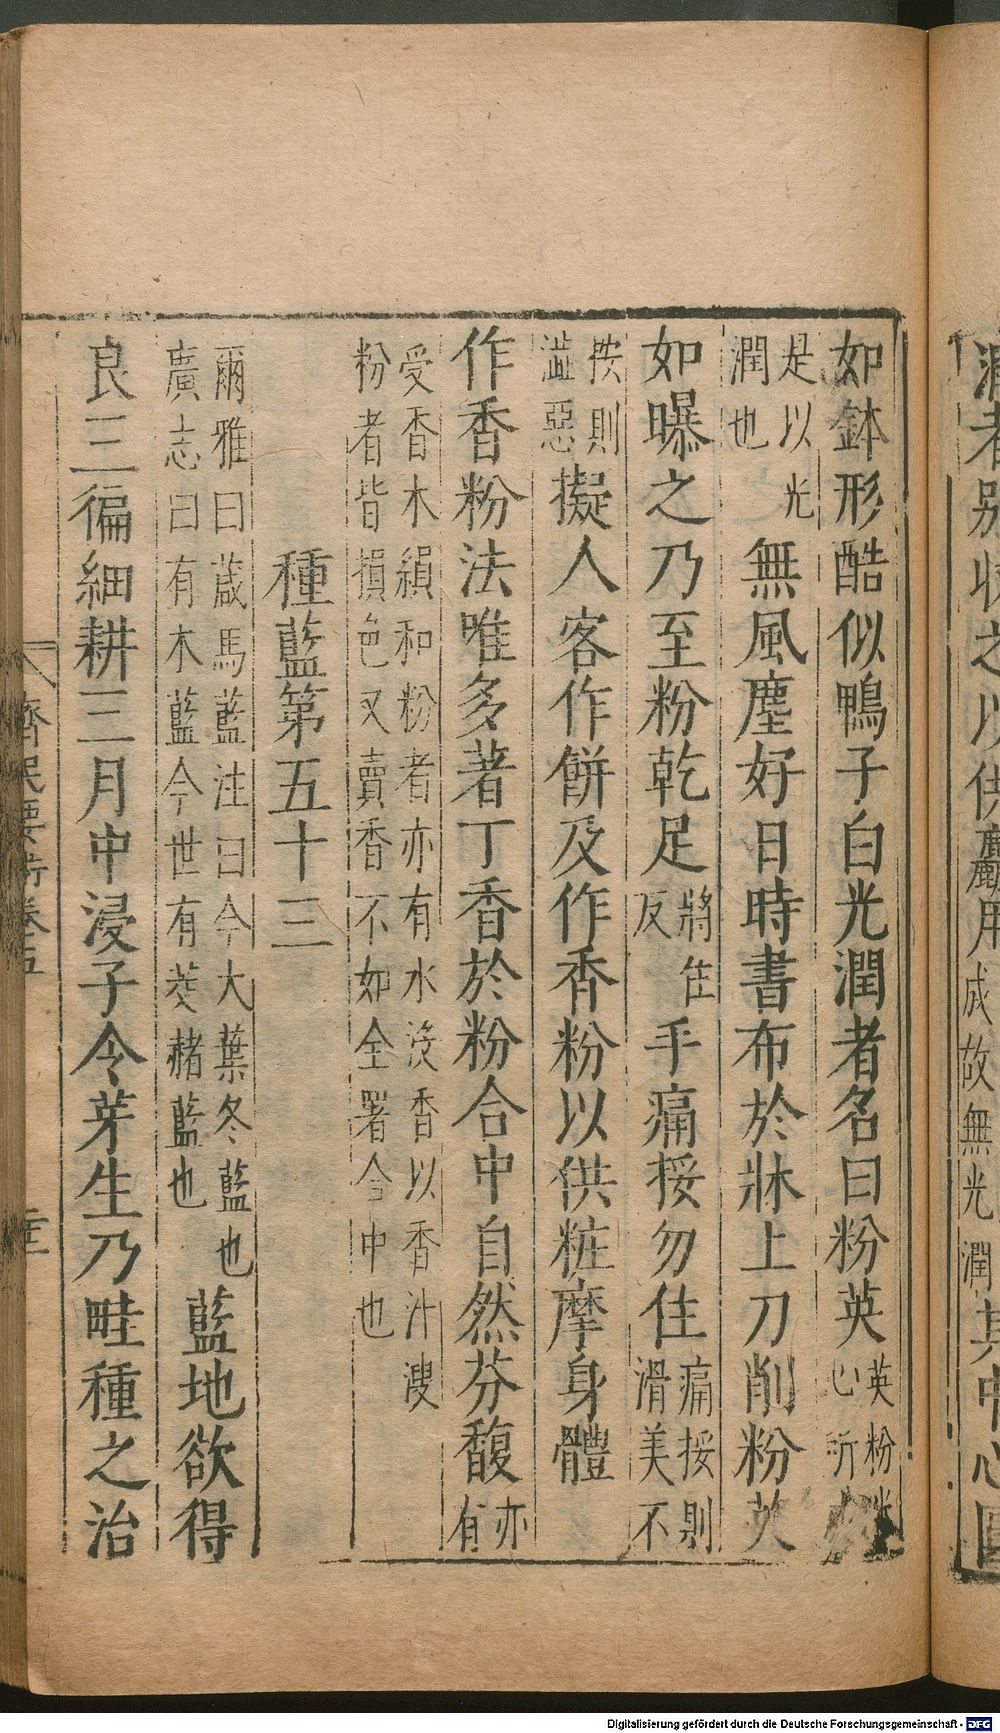 潤者別收之以供麤用
成故無光潤
其中心圓
如鉢形酷似鴨子白光潤者名曰粉英
英粉
心所
是以光
潤也
無風塵好日時書布於牀上刀削粉英
如曝之乃至粉乾足
將住
反
手痛挼勿住
痛挼則
滑美不
挼則
澁惡
擬人客作餅及作香粉以供粧摩身體
作香粉法唯多著丁香於粉合中自然芬馥
亦
有
受香木縜和粉者亦有水沒香以香汁溲
粉者皆損色又賣香不如全署合中也
種藍第五十三
爾雅曰葴馬藍注曰今大葉冬藍也
廣志曰有木藍今世有茭赭藍也
藍地欲得
良三徧細耕三月中浸子令芽生乃畦種之治
齊民要術卷五
Digitalisierung gefördert durch die Deutsche Forschungsgemeinschaft - DFG